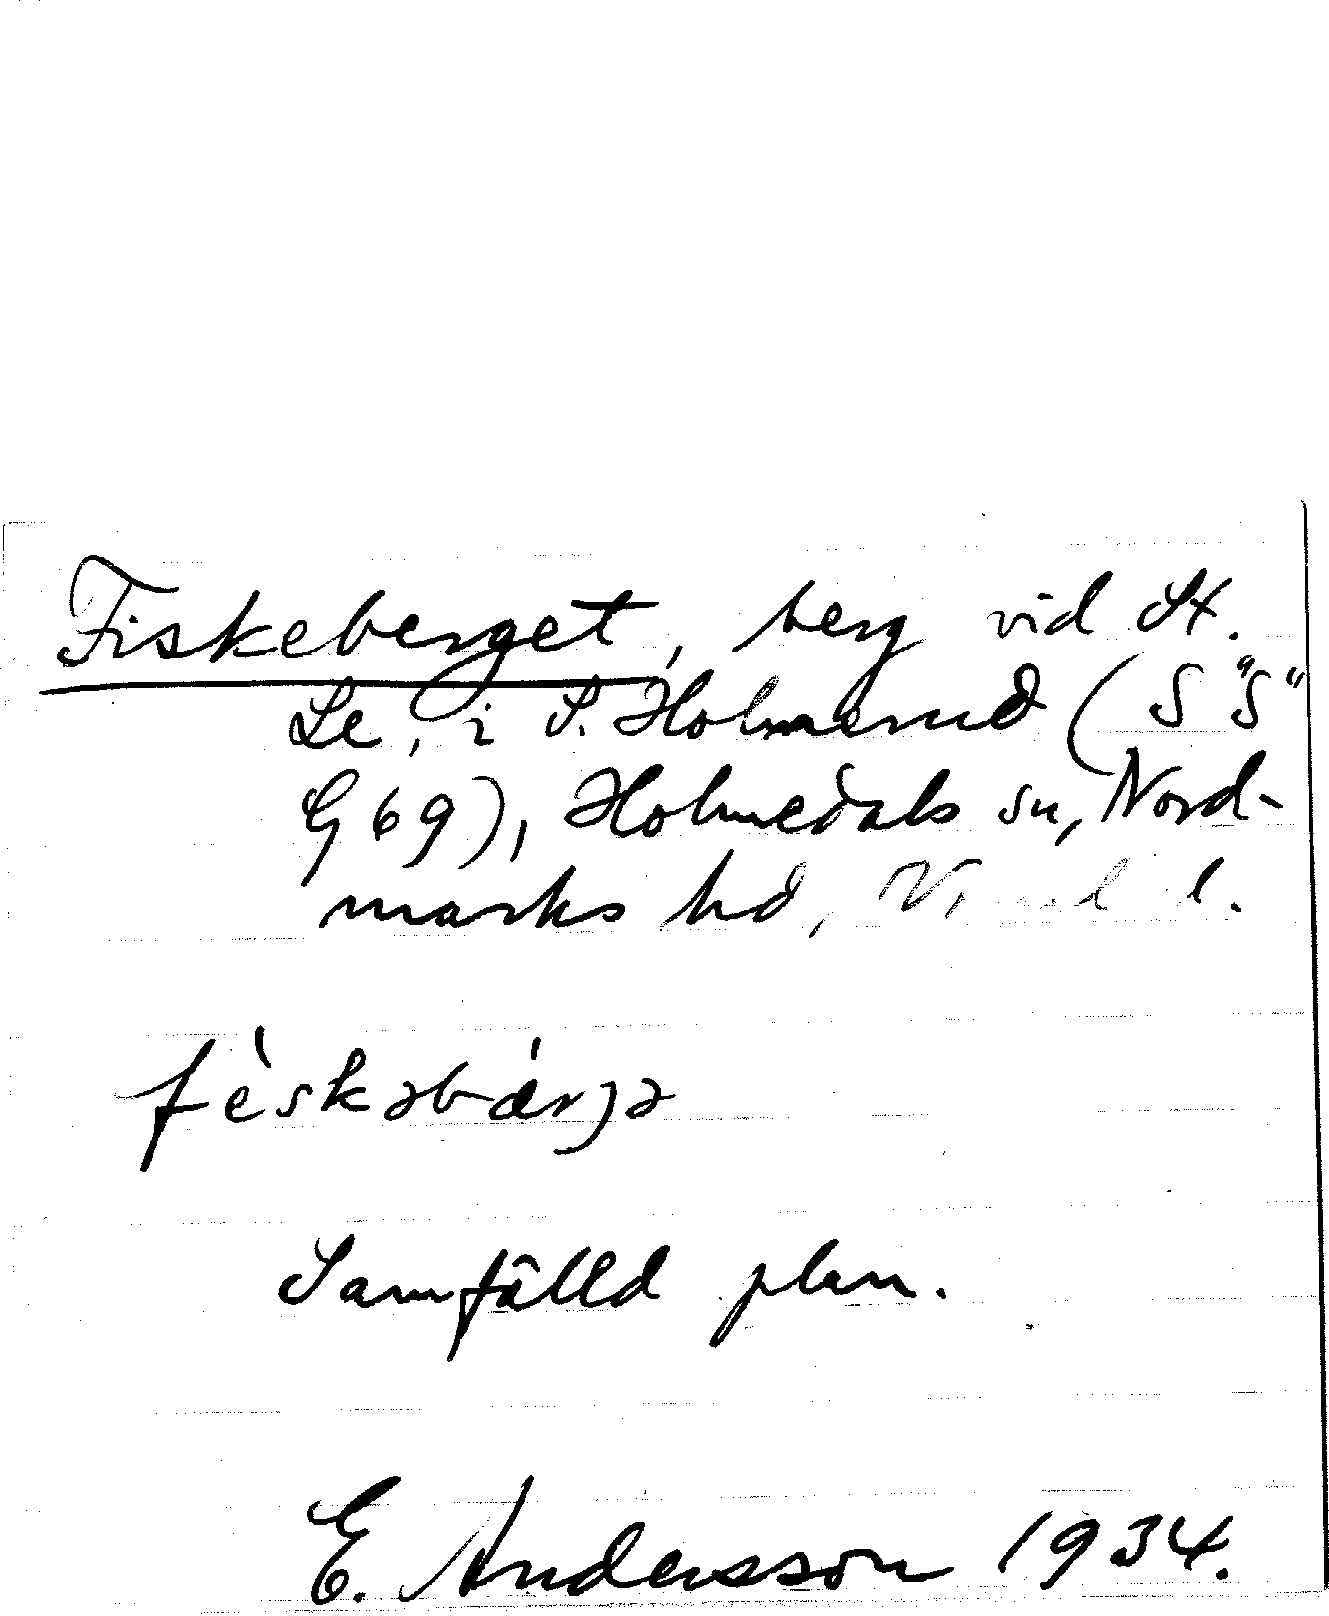 Fiskeberget, berg vid St.
Le, i S. Holmerud (S "S"
G 69), Holmedals sn, Nord-
marks hd, V l.
fè̀skəbærjə
Samfälld plan.
E. Andersson 1934.